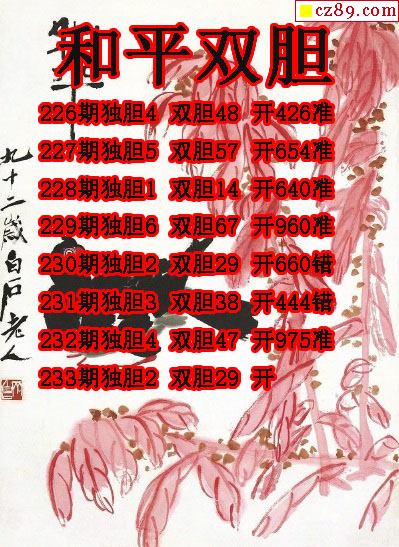 cz89.com
和平双胆
226期独胆4 双胆48 开426准
227期独胆5 双胆57 开654准
228期独胆1 双胆14 开640准
229期独胆6 双胆67 开960准
230期独胆2 双胆29 开660错
231期独胆3 双胆38 开444错
232期独胆4 双胆47 开975准
233期独胆2 双胆29 开
九十二岁白石老人